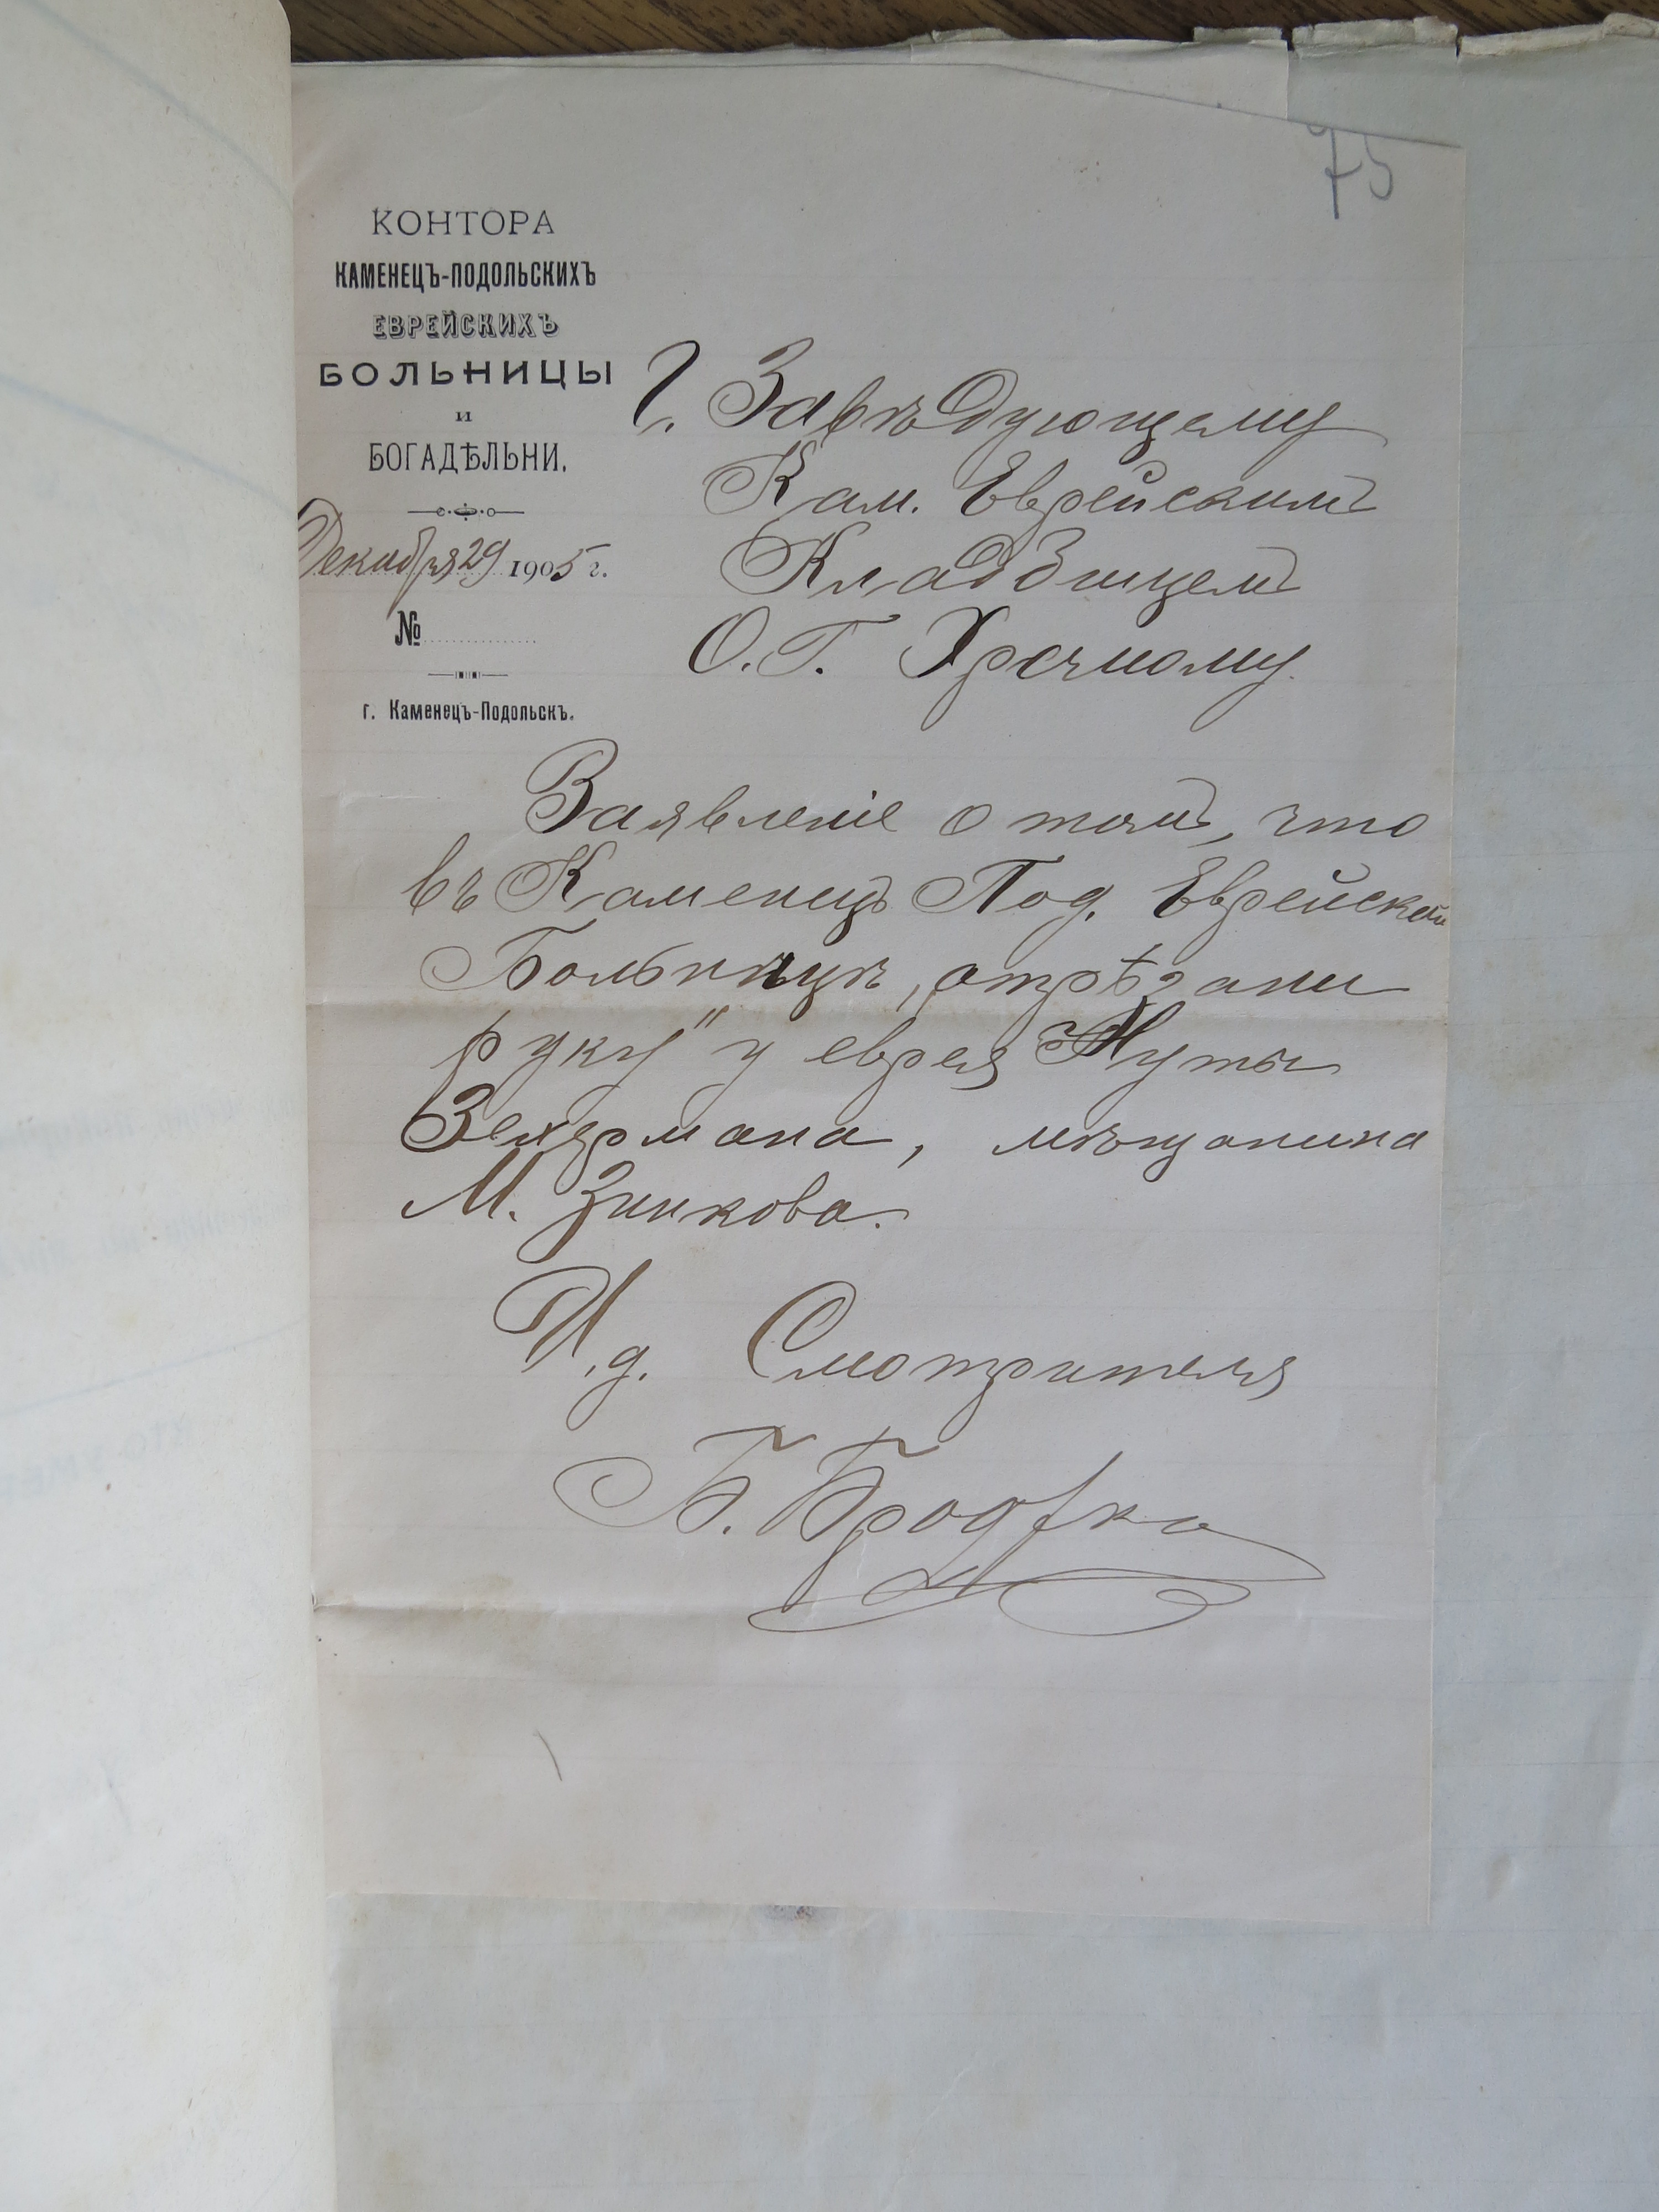 75
КОНТОРА
КАМЕНЕЦЪ-ПОДОЛЬСКИХЪ
ЕВРЕЙСКИХЪ
БОЛЬНИЦЫ
и
БОГАДѢЛЬНИ.
Декабря 29 1905 г.
№
г. Каменецъ-Подольскъ.
Г. Завѣдующему
Кам. Еврейскимъ
Кладбищемъ
О. Г.
Заявленіе о томъ, что
въ Каменецъ Под. Еврейской
Больницѣ, „отрѣзали
руку" у еврея Нуты
мѣщанина
М. Зинкова.
И. д. Смотрителя
Б.